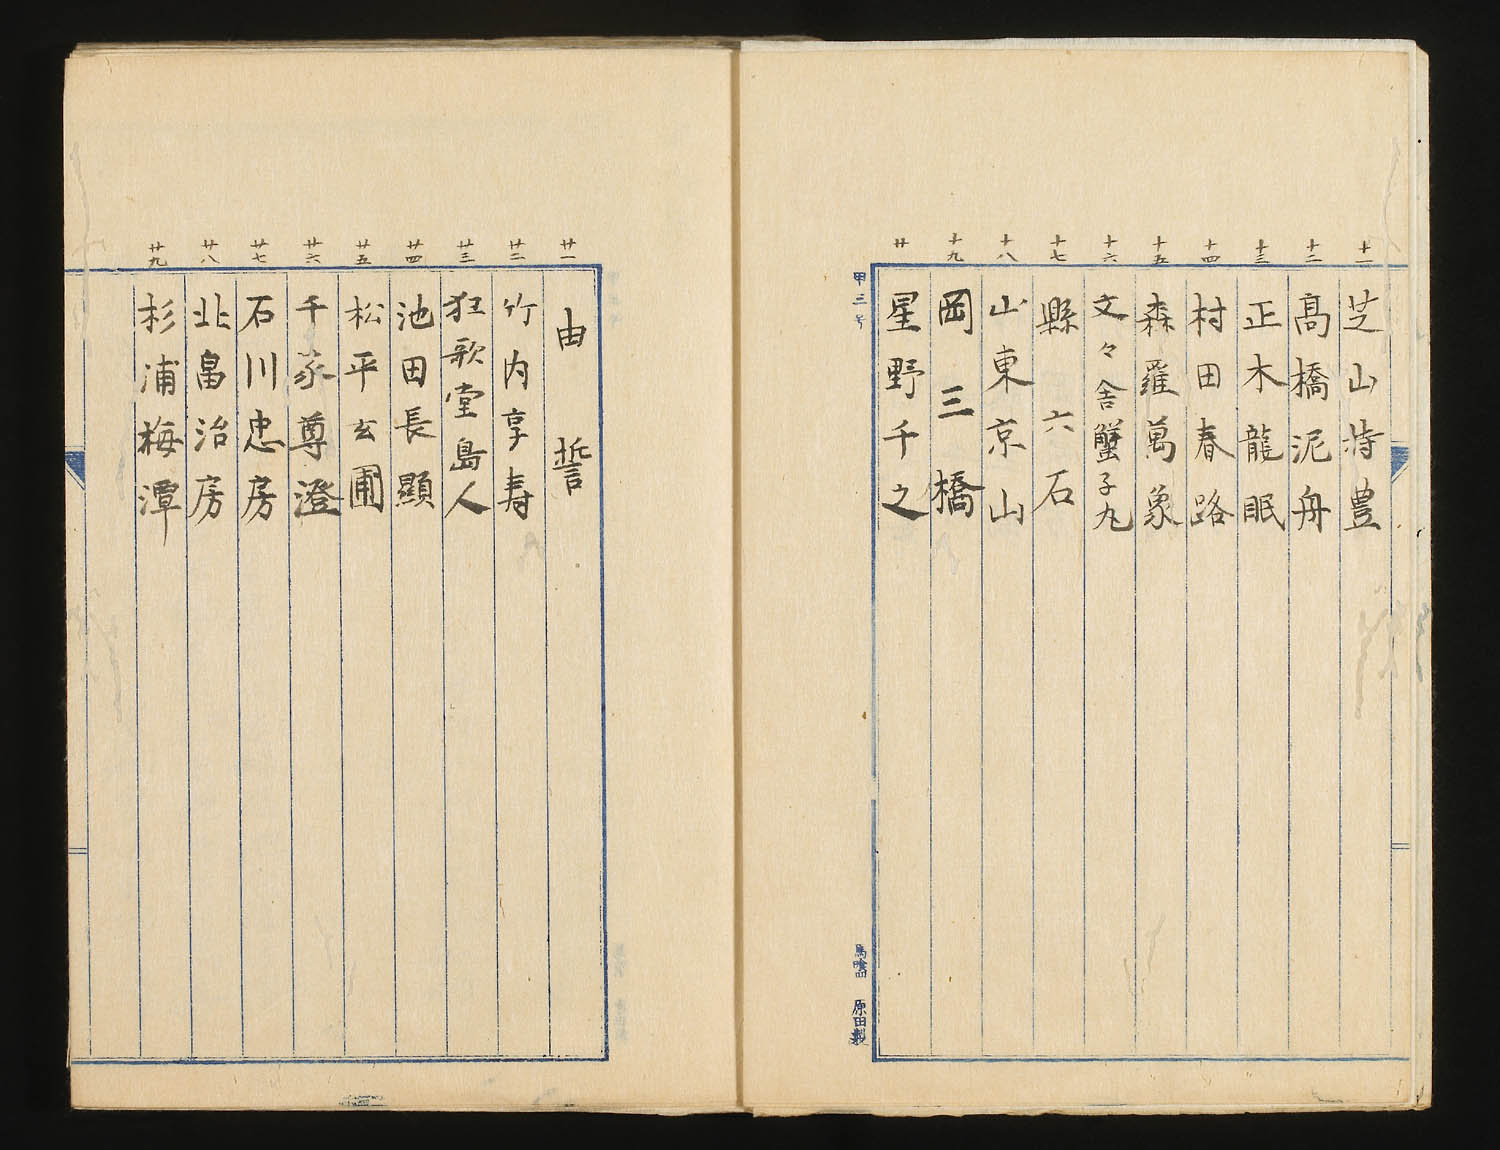 十一 芝山持豊
十二 高橋泥舟
十三 正木龍眠
十四 村田春路
十五 森羅萬象
十六 文々舎蟹子丸
十七 縣六石
十八 山東京山
十九 岡三橋
廿 星野千之
甲三号
原田製
廿一 由誓
廿二 竹内享寿
廿三 狂歌堂島人
廿四 池田長顯
廿五 松平玄圃
廿六 千家尊澄
廿七 石川忠房
廿八 北畠治房
廿九 杉浦梅潭